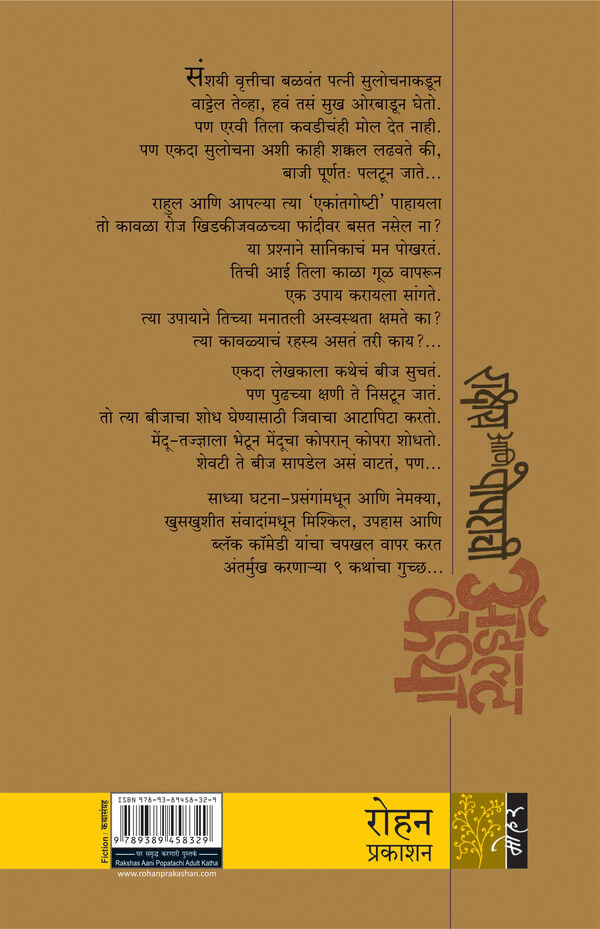 संशयी वृत्तीचा बळवंत पत्नी सुलोचनाकडून
वाट्टेल तेव्हा, हवं तसं सुख ओरबाडून घेतो.
पण एरवी तिला कवडीचंही मोल देत नाही.
पण एकदा सुलोचना अशी काही शक्कल लढवते की,
बाजी पूर्णतः पलटून जाते...
राहुल आणि आपल्या त्या ‘एकांतगोष्टी’ पाहायला
तो कावळा रोज खिडकीजवळच्या फांदीवर बसत नसेल ना?
या प्रश्नाने सानिकाचं मन पोखरतं.
तिची आई तिला काळा गूळ वापरून
एक उपाय करायला सांगते.
त्या उपायाने तिच्या मनातली अस्वस्थता क्षमते का?
त्या कावळ्याचं रहस्य असतं तरी काय?...
एकदा लेखकाला कथेचं बीज सुचतं.
पण पुढच्या क्षणी ते निसटून जातं.
तो त्या बीजाचा शोध घेण्यासाठी जिवाचा आटापिटा करतो.
मेंदू-तज्ज्ञाला भेटून मेंदूचा कोपरान् कोपरा शोधतो.
शेवटी ते बीज सापडेल असं वाटतं, पण...
साध्या घटना-प्रसंगांमधून आणि नेमक्या,
खुसखुशीत संवादांमधून मिश्किल, उपहास आणि
ब्लॅक कॉमेडी यांचा चपखल वापर करत
अंतर्मुख करणाऱ्या ९ कथांचा गुच्छ...
राक्षस आणि पोपटाची
अ‍ॅडल्ट
कथा
Fiction / कथासंग्रह
ISBN 978-93-89458-32-9
9 789389 458329
घर समृद्ध करणारी पुस्तके
Rakshas Aani Popatachi Adult Katha
www.rohanprakashan.com
रोहन
प्रकाशन
मोहर